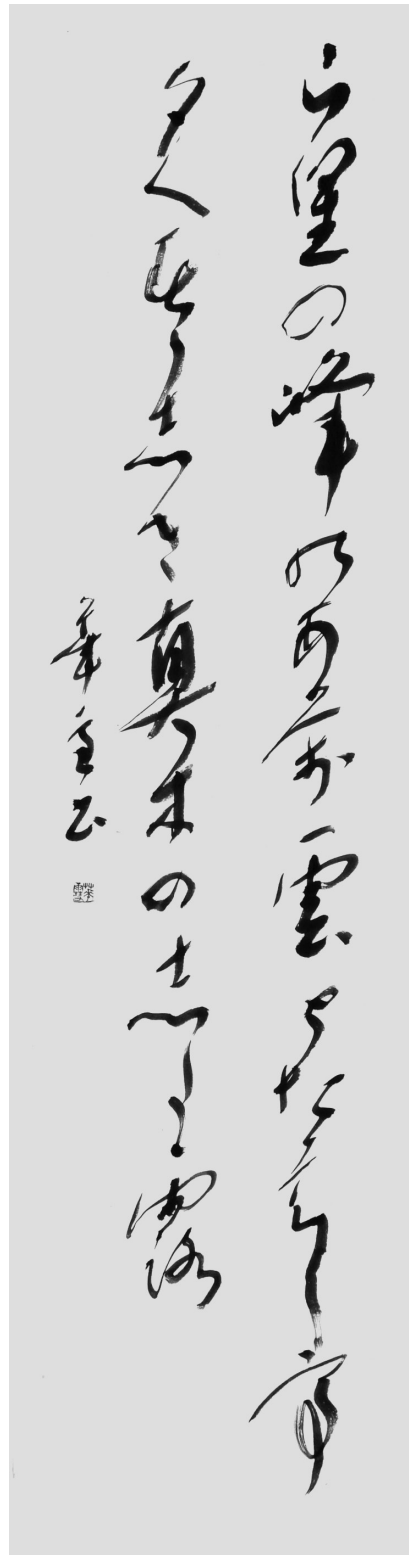 山里の峰のあま雲とたえして
夕へすゝしき真木のした露